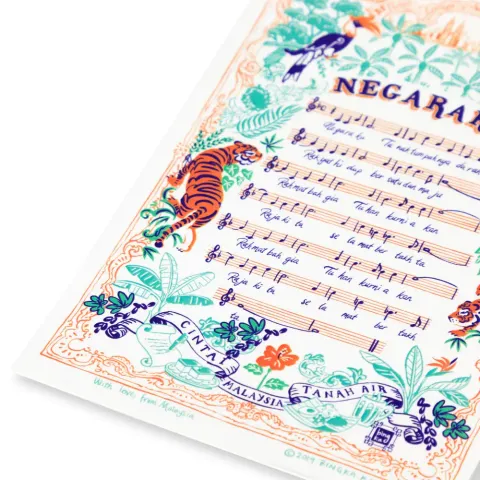 NEGARAK
Negara ku Tanah tumpahnya da rah
Rak yat hi dup ber satu dan ma ju
Rah mat bah gia Tu han kurni a kan
Ra ja ki ta se la mat ber takh ta
Rah mat bah gia Tu han kurni a kan
Ra ja ki ta se la mat ber takh
ta
CINTAI MALAYSIA TANAH AIR
With love, from Malaysia
© 2019 BINGKA K